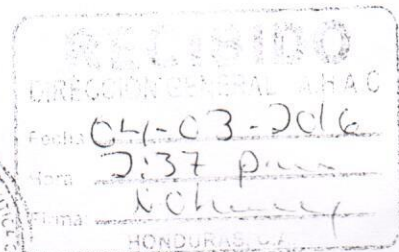 RECIBIDO
DIRECCION GENERAL A.H.A.C
Fecha 04-03-2016
Hora 2:37 p.m
Firma
HONDURAS, C.A.